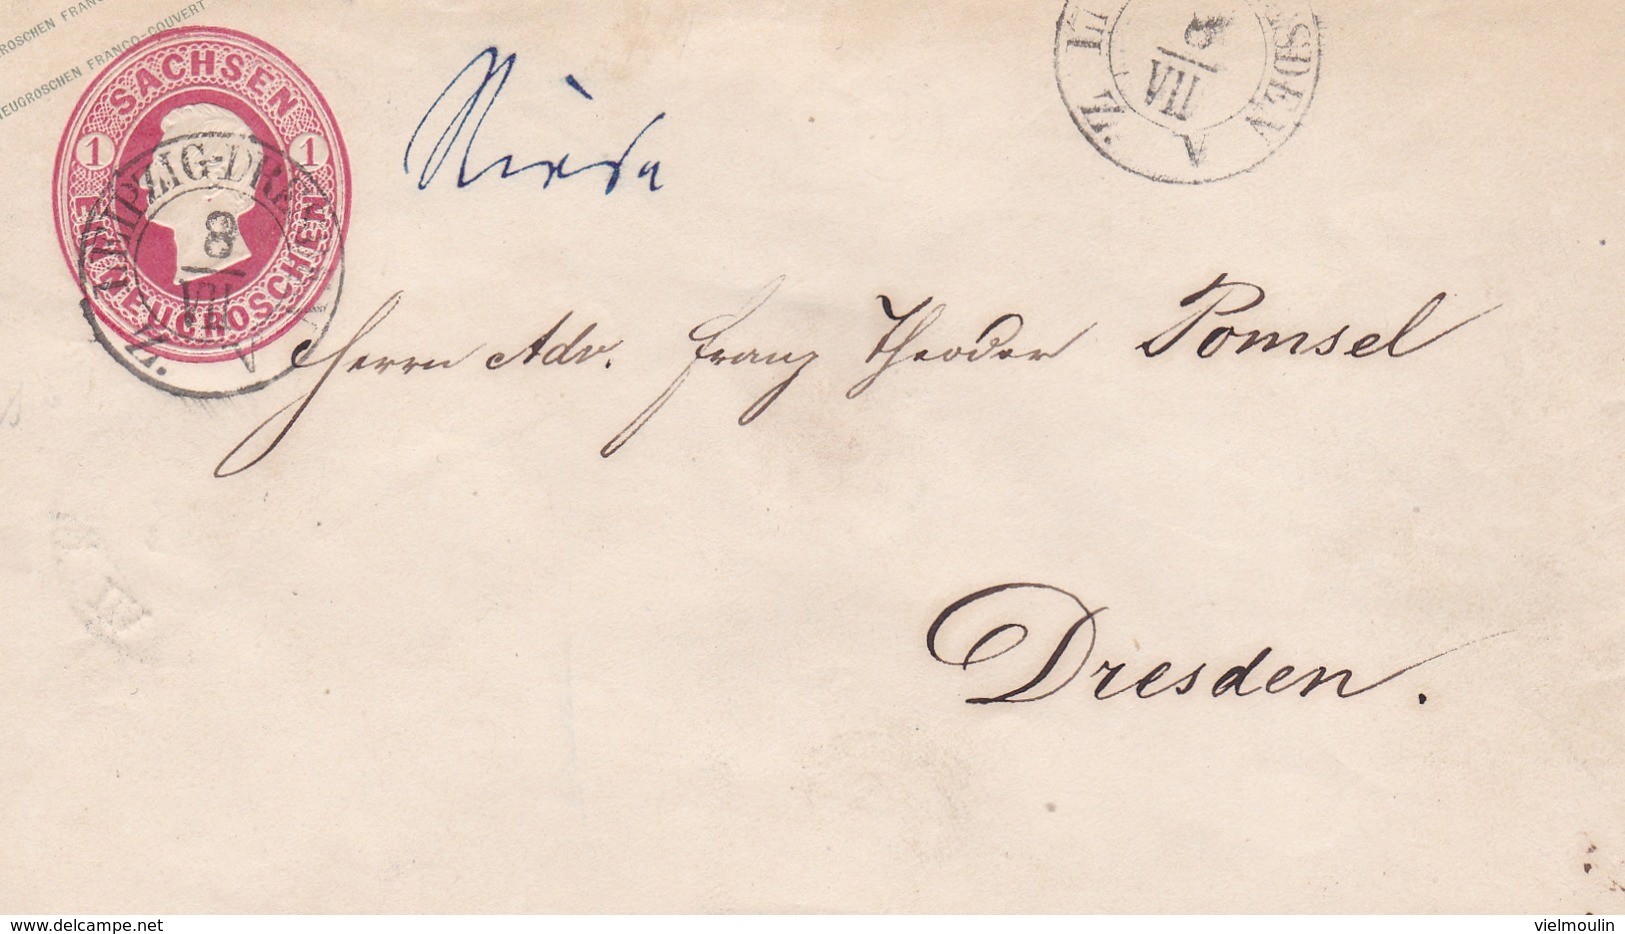 GROSCHEN FRANCO
NEUGROSCHEN FRANCO-COUVERT
SACHSEN
1 1
EIN NEUGROSCHEN
LEIPZIG-DRE
8
VII
Z. V
SDEN
8
VII
Z. V
Riesa
Herrn Adv. Franz Theodor Pomsel
Dresden.
delcampe.net
vielmoulin